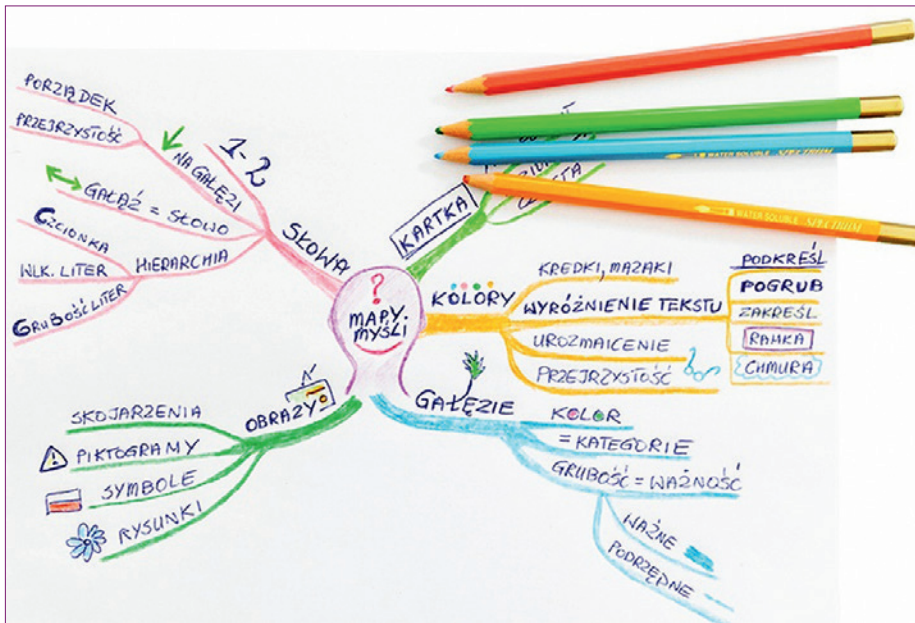 ?
MAPY
MYŚLI
SŁOWA
1-2
NA GAŁĘZI
PORZĄDEK
PRZEJRZYSTOŚĆ
GAŁĄŹ = SŁOWO
HIERARCHIA
CZCIONKA
WLK. LITER
GRUBOŚĆ LITER
KARTKA
KOLORY
KREDKI, MAZAKI
WYRÓŻNIENIE TEKSTU
PODKREŚL
POGRUB
ZAKREŚL
RAMKA
CHMURA
UROZMAICENIE
PRZEJRZYSTOŚĆ
GAŁĘZIE
KOLOR
= KATEGORIE
GRUBOŚĆ = WAŻNOŚĆ
WAŻNE
PODRZĘDNE
OBRAZY
SKOJARZENIA
PIKTOGRAMY
SYMBOLE
RYSUNKI
WATER SOLUBLE SPECTRUM
WATER-SOLUBLE SPECTRUM